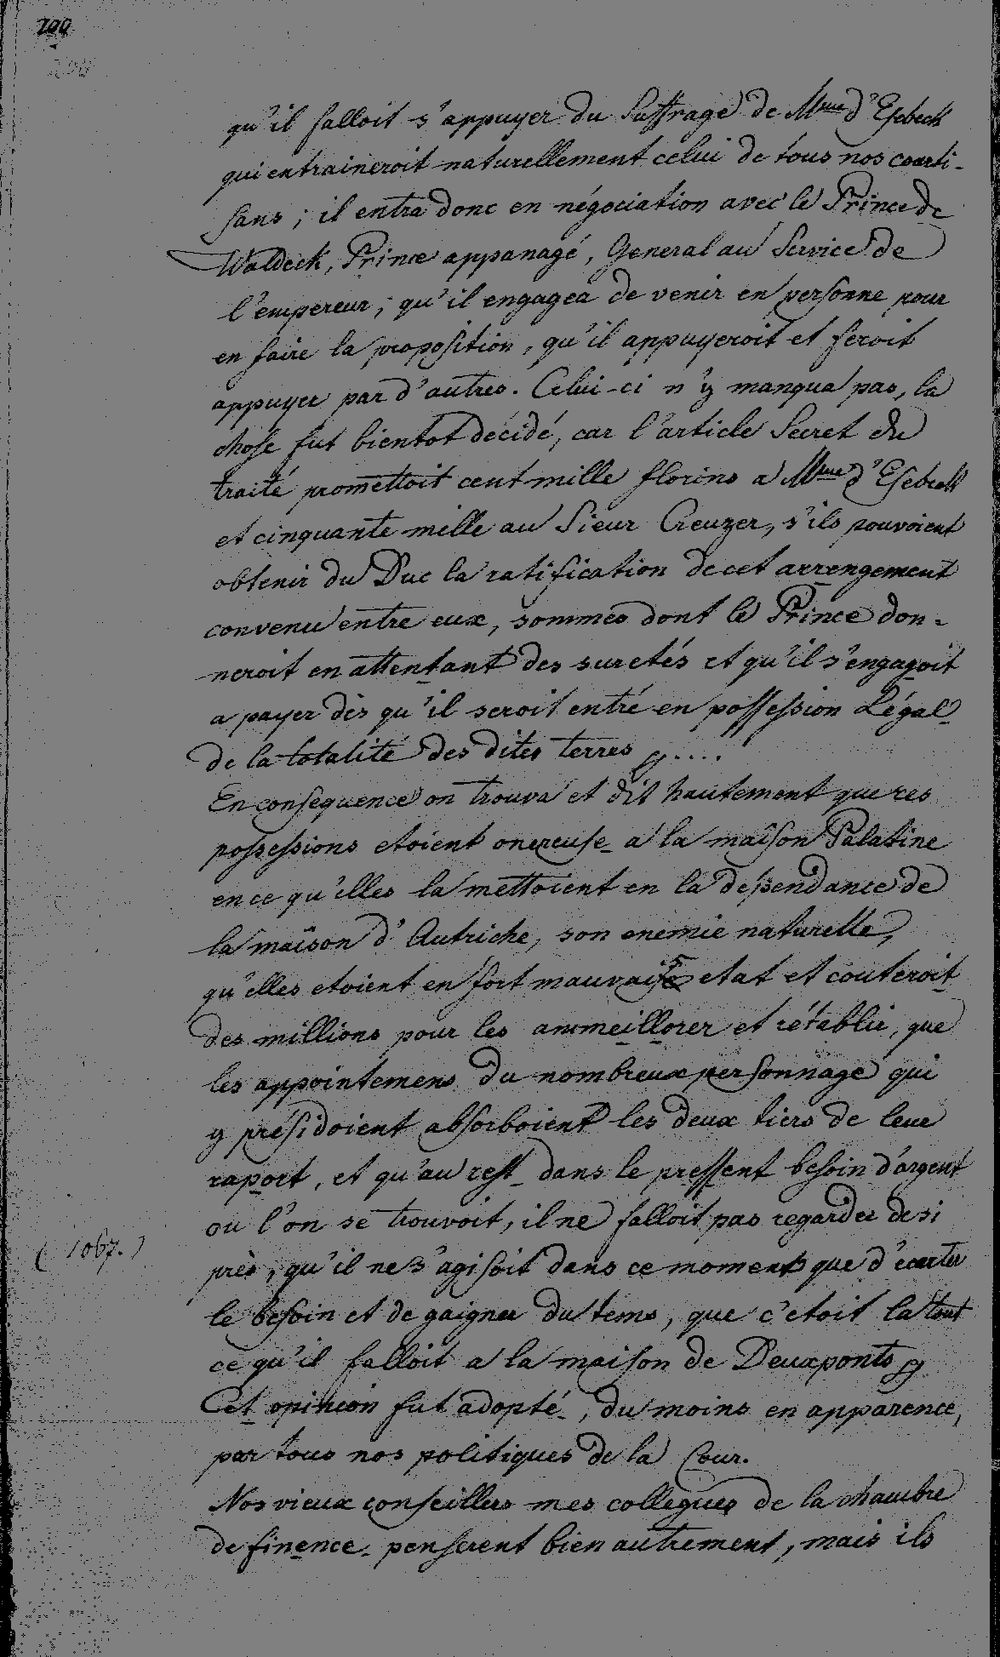 200
200
qu'il falloit s'appuyer du Suffrage de Mme d'Esebeck
qui entraineroit naturellement celui de tous nos courti-
sans ; il entra donc en négociation avec le Prince de
Waldeck, Prince appanagé, General au Service de
l'empereur ; qu'il engagea de venir en personne pour
en faire la proposition, qu'il appuyeroit et feroit
appuyer par d'autres. Celui-ci n'y manqua pas, la
chose fut bientot décidé, car l'article Secret du
traité promettoit cent mille florins a Mme d'Esebeck
et cinquante mille au Sieur Creuzer, s'ils pouvoient
obtenir du Duc la ratification de cet arrengement
convenu entre eux, sommes dont le Prince don-
neroit en attentant des suretés et qu'il s'engagoit
a payer dès qu'il seroit entré en possession Légal
de la totalité des dites terres ....
En consequence on trouva et dit hautement que ces
possessions etoient onereuse a la maison Palatine
en ce qu'elles la mettoient en la dependance de
la maison d'Autriche, son enemie naturelle,
qu'elles etoient en fort mauvais etat et couteroit
des millions pour les ammeillorer et rétablir, que
les appointemens du nombreux personnage qui
y présidoient absorboient les deux tiers de leur
raport, et qu'au rest dans le pressent besoin d'argent
ou l'on se trouvoit, il ne falloit pas regarder de si
( 1067. )
près, qu'il ne s'agisoit dans ce moment que d'ecarter
le besoin et de gaigner du tems, que c'etoit la tout
ce qu'il falloit a la maison de Deuxponts
Cet opinion fut adopté, du moins en apparence,
par tous nos politiques de la Cour.
Nos vieux conseillers mes collegues de la chambre
de finence penserent bien autrement, mais ils